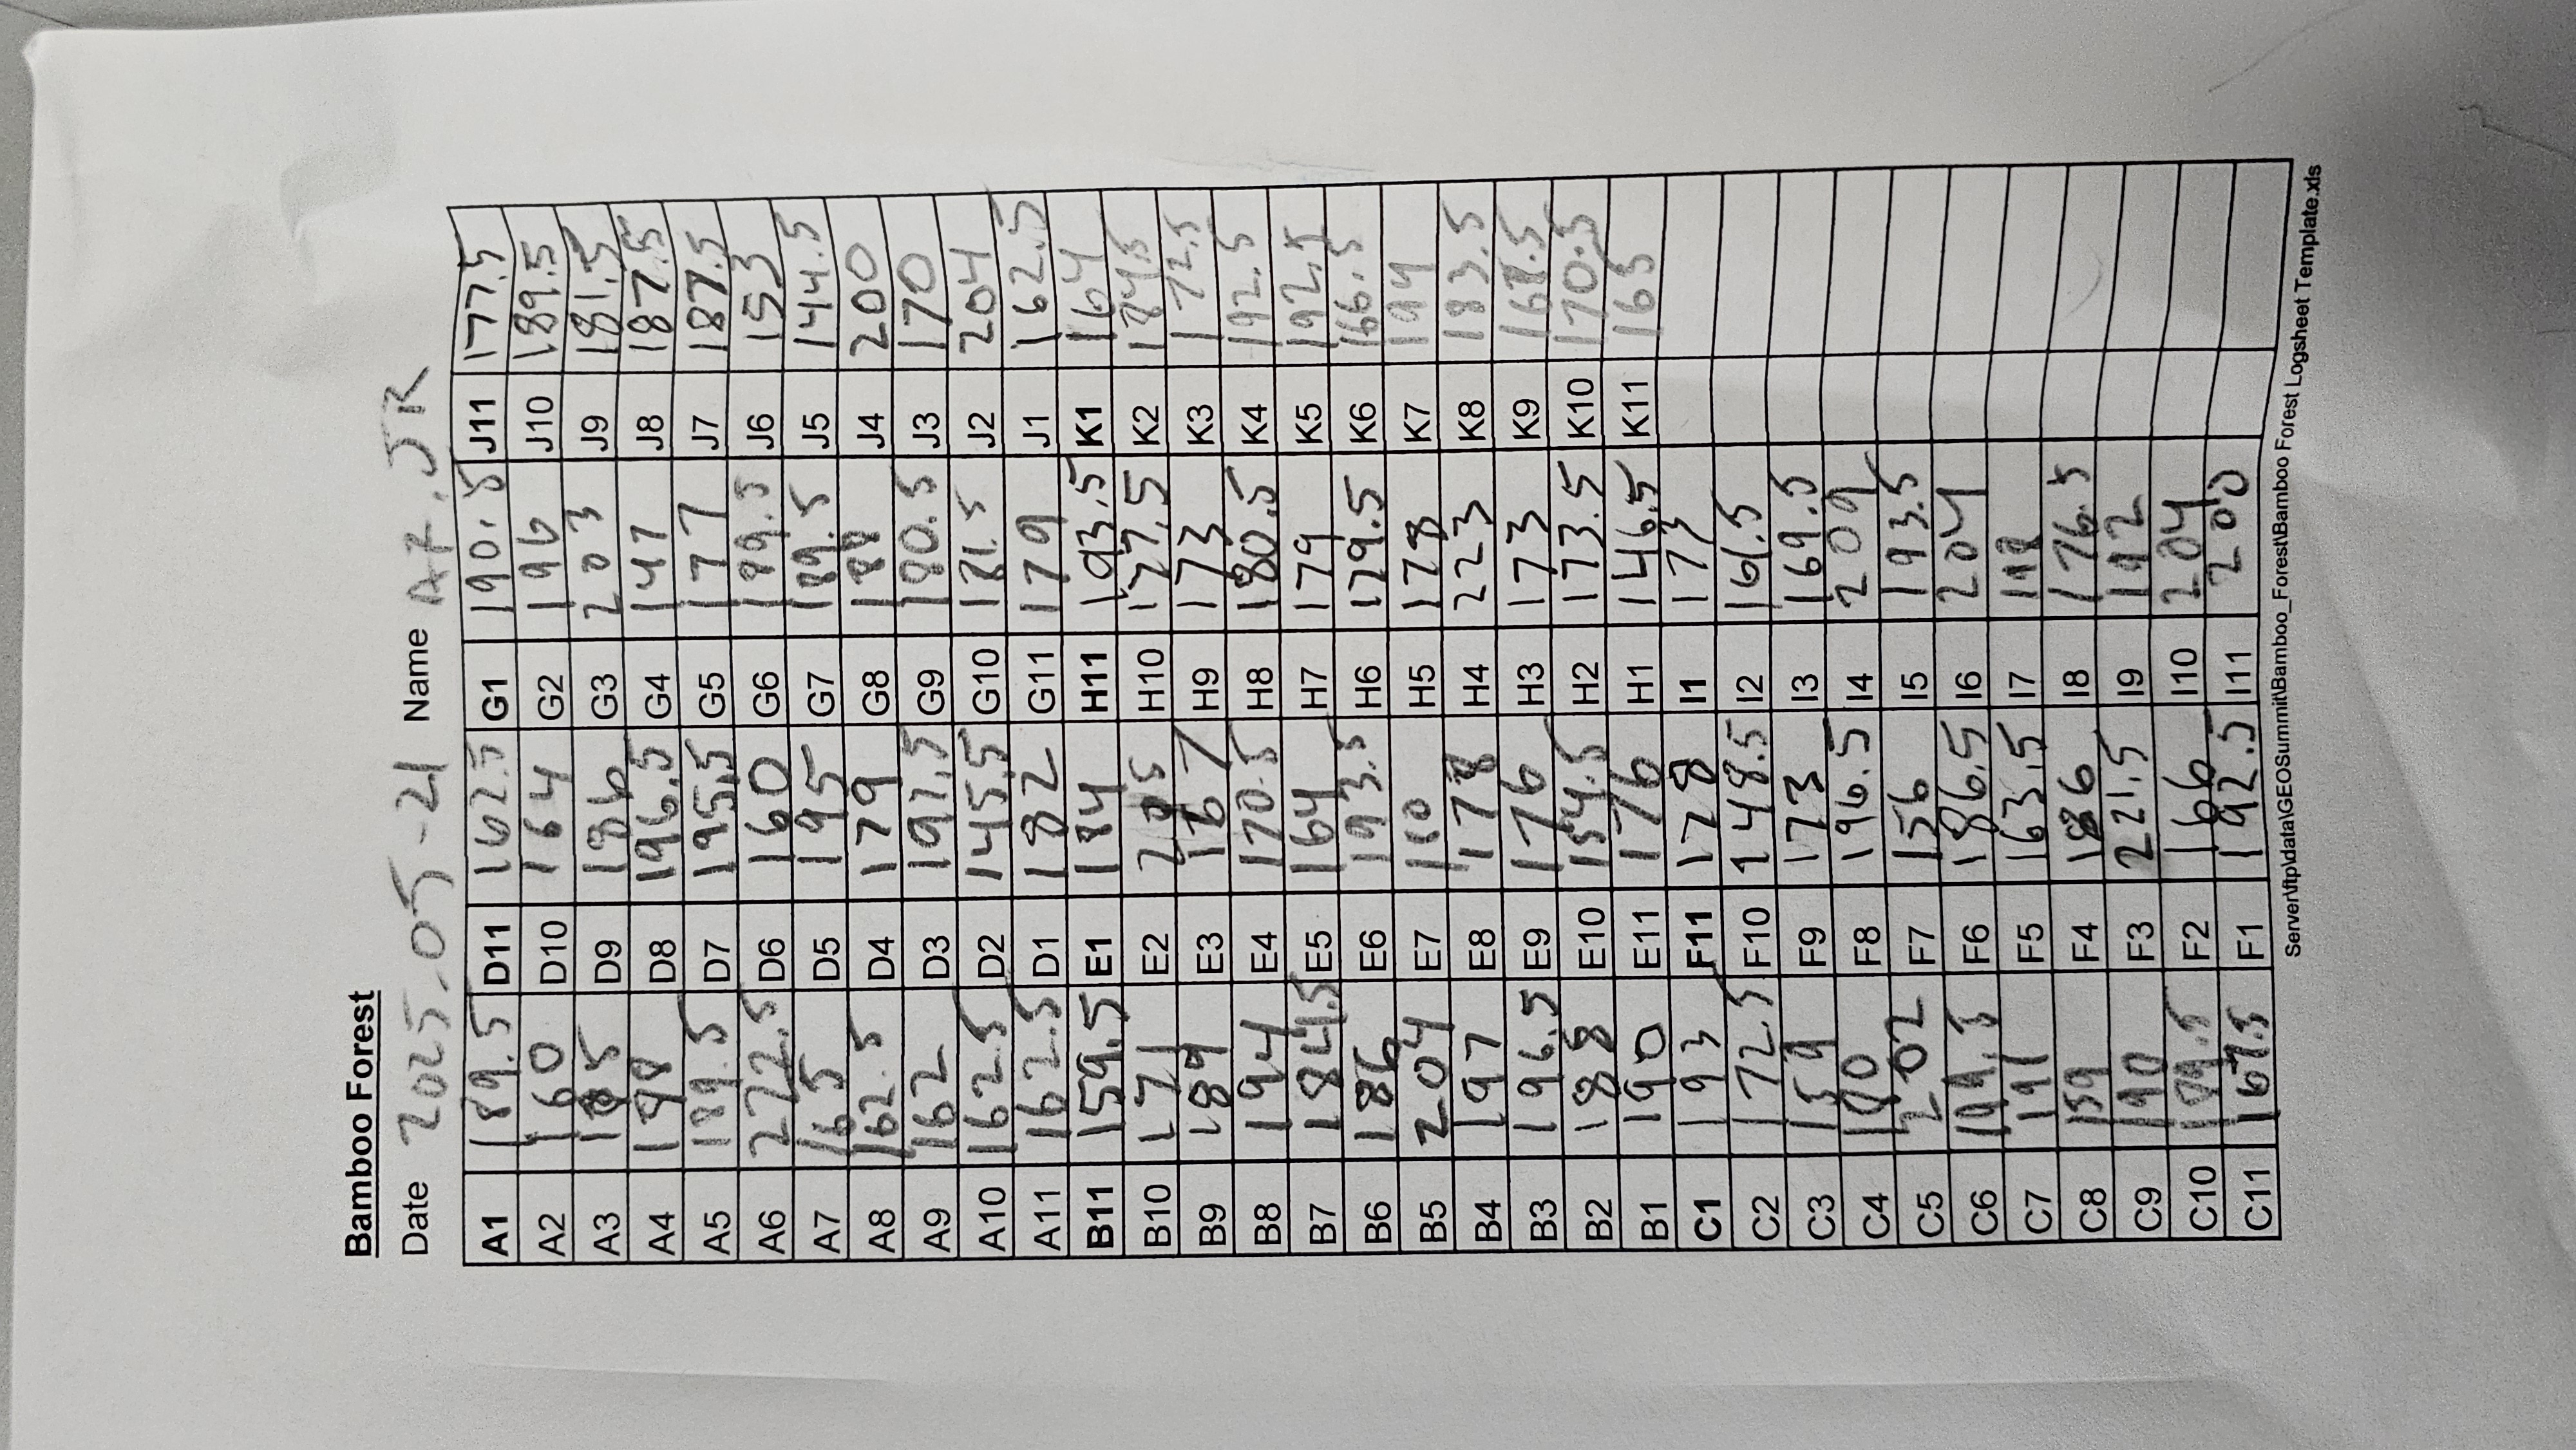 Bamboo Forest
Date 2025-05-21 Name AF.JR
A1 189.5 D11 162.5 G1 190.5 J11 177.5
A2 160 D10 164 G2 196 J10 189.5
A3 D9 186 G3 203 J9 181.5
A4 D8 196.5 G4 147 J8 187.5
A5 189.5 D7 195.5 G5 177 J7 187.5
A6 222.5 D6 160 G6 J6 153
A7 165 D5 195 G7 189.5 J5 144.5
A8 162.5 D4 179 G8 J4 200
A9 162 D3 191.5 G9 J3 170
A10 162.5 D2 145.5 G10 181.5 J2 204
A11 162.5 D1 182 G11 179 J1 162.5
B11 159.5 E1 184 H11 193.5 K1 164
B10 171 E2 H10 177.5 K2 184.5
B9 189 E3 167 H9 173 K3 172.5
B8 194 E4 170.5 H8 180.5 K4 192.5
B7 184.5 E5 164 H7 179 K5 192.5
B6 186 E6 193.5 H6 179.5 K6 166.5
B5 204 E7 H5 178 K7 194
B4 197 E8 178 H4 223 K8 183.5
B3 196.5 E9 176 H3 173 K9
B2 188 E10 154.5 H2 173.5 K10 170.5
B1 190 E11 176 H1 146.5 K11 165
C1 193 F11 178 I1 173
C2 172.5 F10 148.5 I2 161.5
C3 159 F9 173 I3 169.5
C4 F8 196.5 I4 209
C5 202 F7 156 I5 193.5
C6 F6 186.5 I6 204
C7 191 F5 163.5 I7
C8 159 F4 186 I8 176.5
C9 190 F3 221.5 I9 192
C10 189.5 F2 166 I10 204
C11 167.5 F1 192.5 I11 200
Server\ftp\data\GEOSummit\Bamboo_Forest\Bamboo Forest Logsheet Template.xls